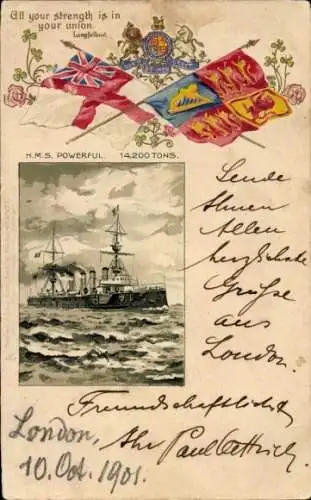 All your strength is in
your union.
Longfellow.
H.M.S. POWERFUL. 14,200 TONS.
Sende
Ihnen
Allen
herzlichste
Grüße
aus
London.
Freundschaftlichst
Ihr Paul
London,
10. Oct. 1901.